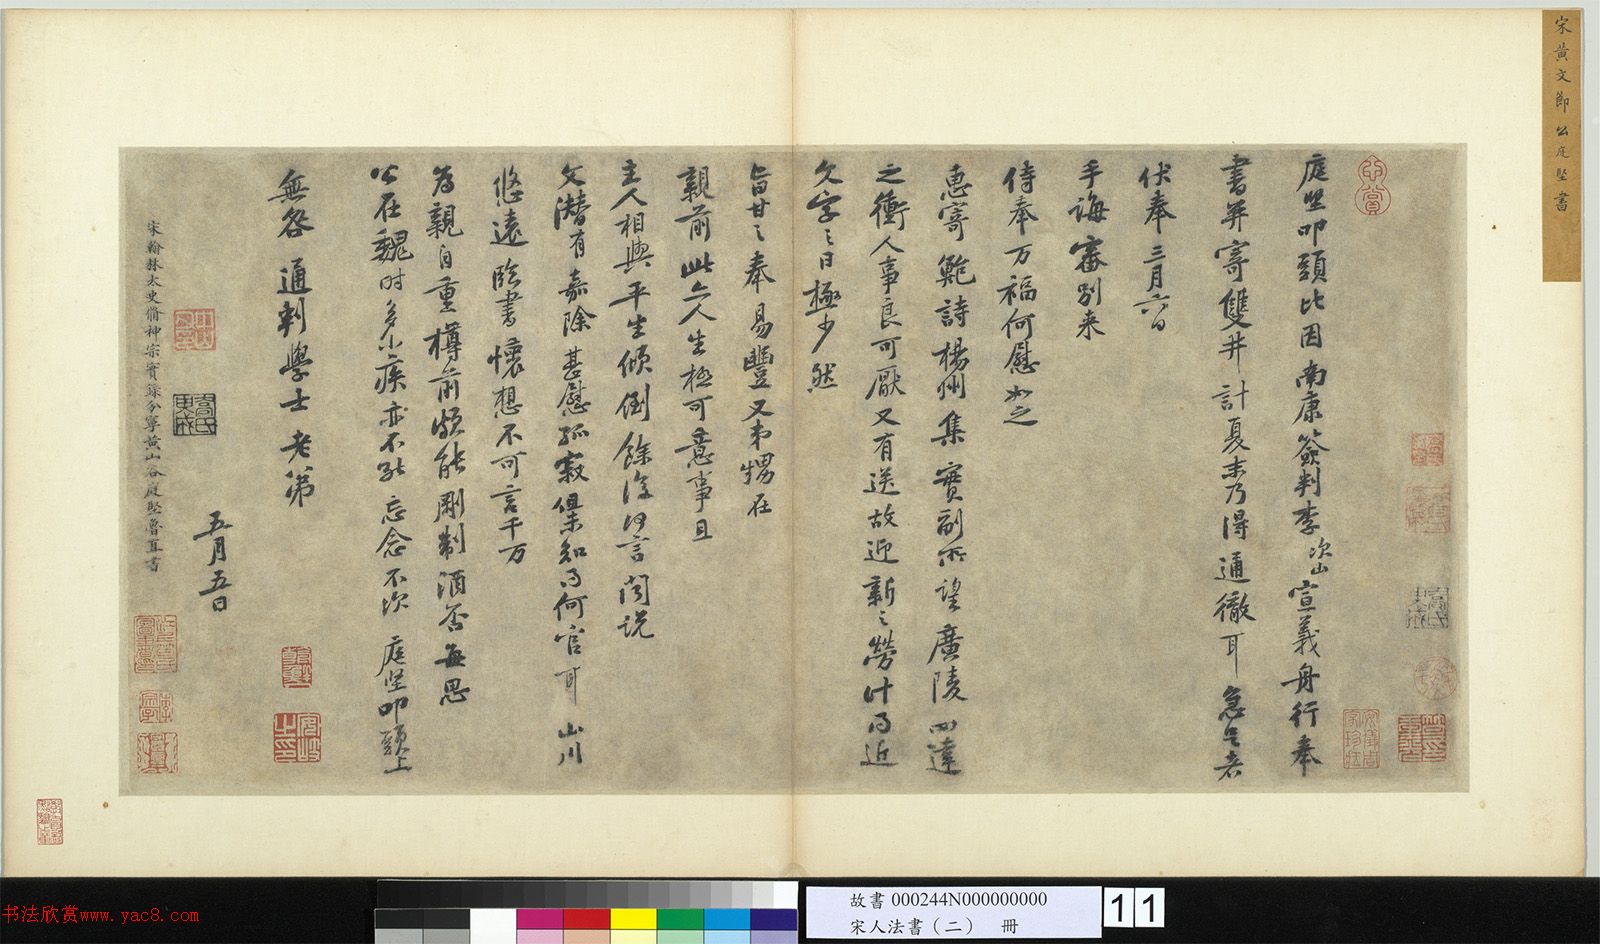 宋黃文節公庭堅書
庭堅叩頭比因南康簽判李次山宣義舟行奉
書并寄雙井計夏末乃得通徹耳急足者
伏奉三月六日
手誨審別來
侍奉万福何慰如之
惠寄鮑詩楊州集實副所望廣陵四達
之衝人事良可厭又有送故迎新之勞計得近
文字之日極少然
旨甘之奉易豐又弟甥在
親前此亦人生極可意事且
主人相與平生傾倒餘復何言聞說
文潛有嘉除甚慰孤寂但未知得何官耳山川
悠遠臨書懷想不可言千万
為親自重樽前頗能剛制酒否每思
公在魏時多小疾亦不能忘念不次庭堅叩頭上
無咎通判學士老弟
五月五日
宋翰林太史脩神宗實錄分寧黃山谷庭堅魯直書
故書 000244N000000000
宋人法書（二） 冊
11
书法欣赏www.yac8.com